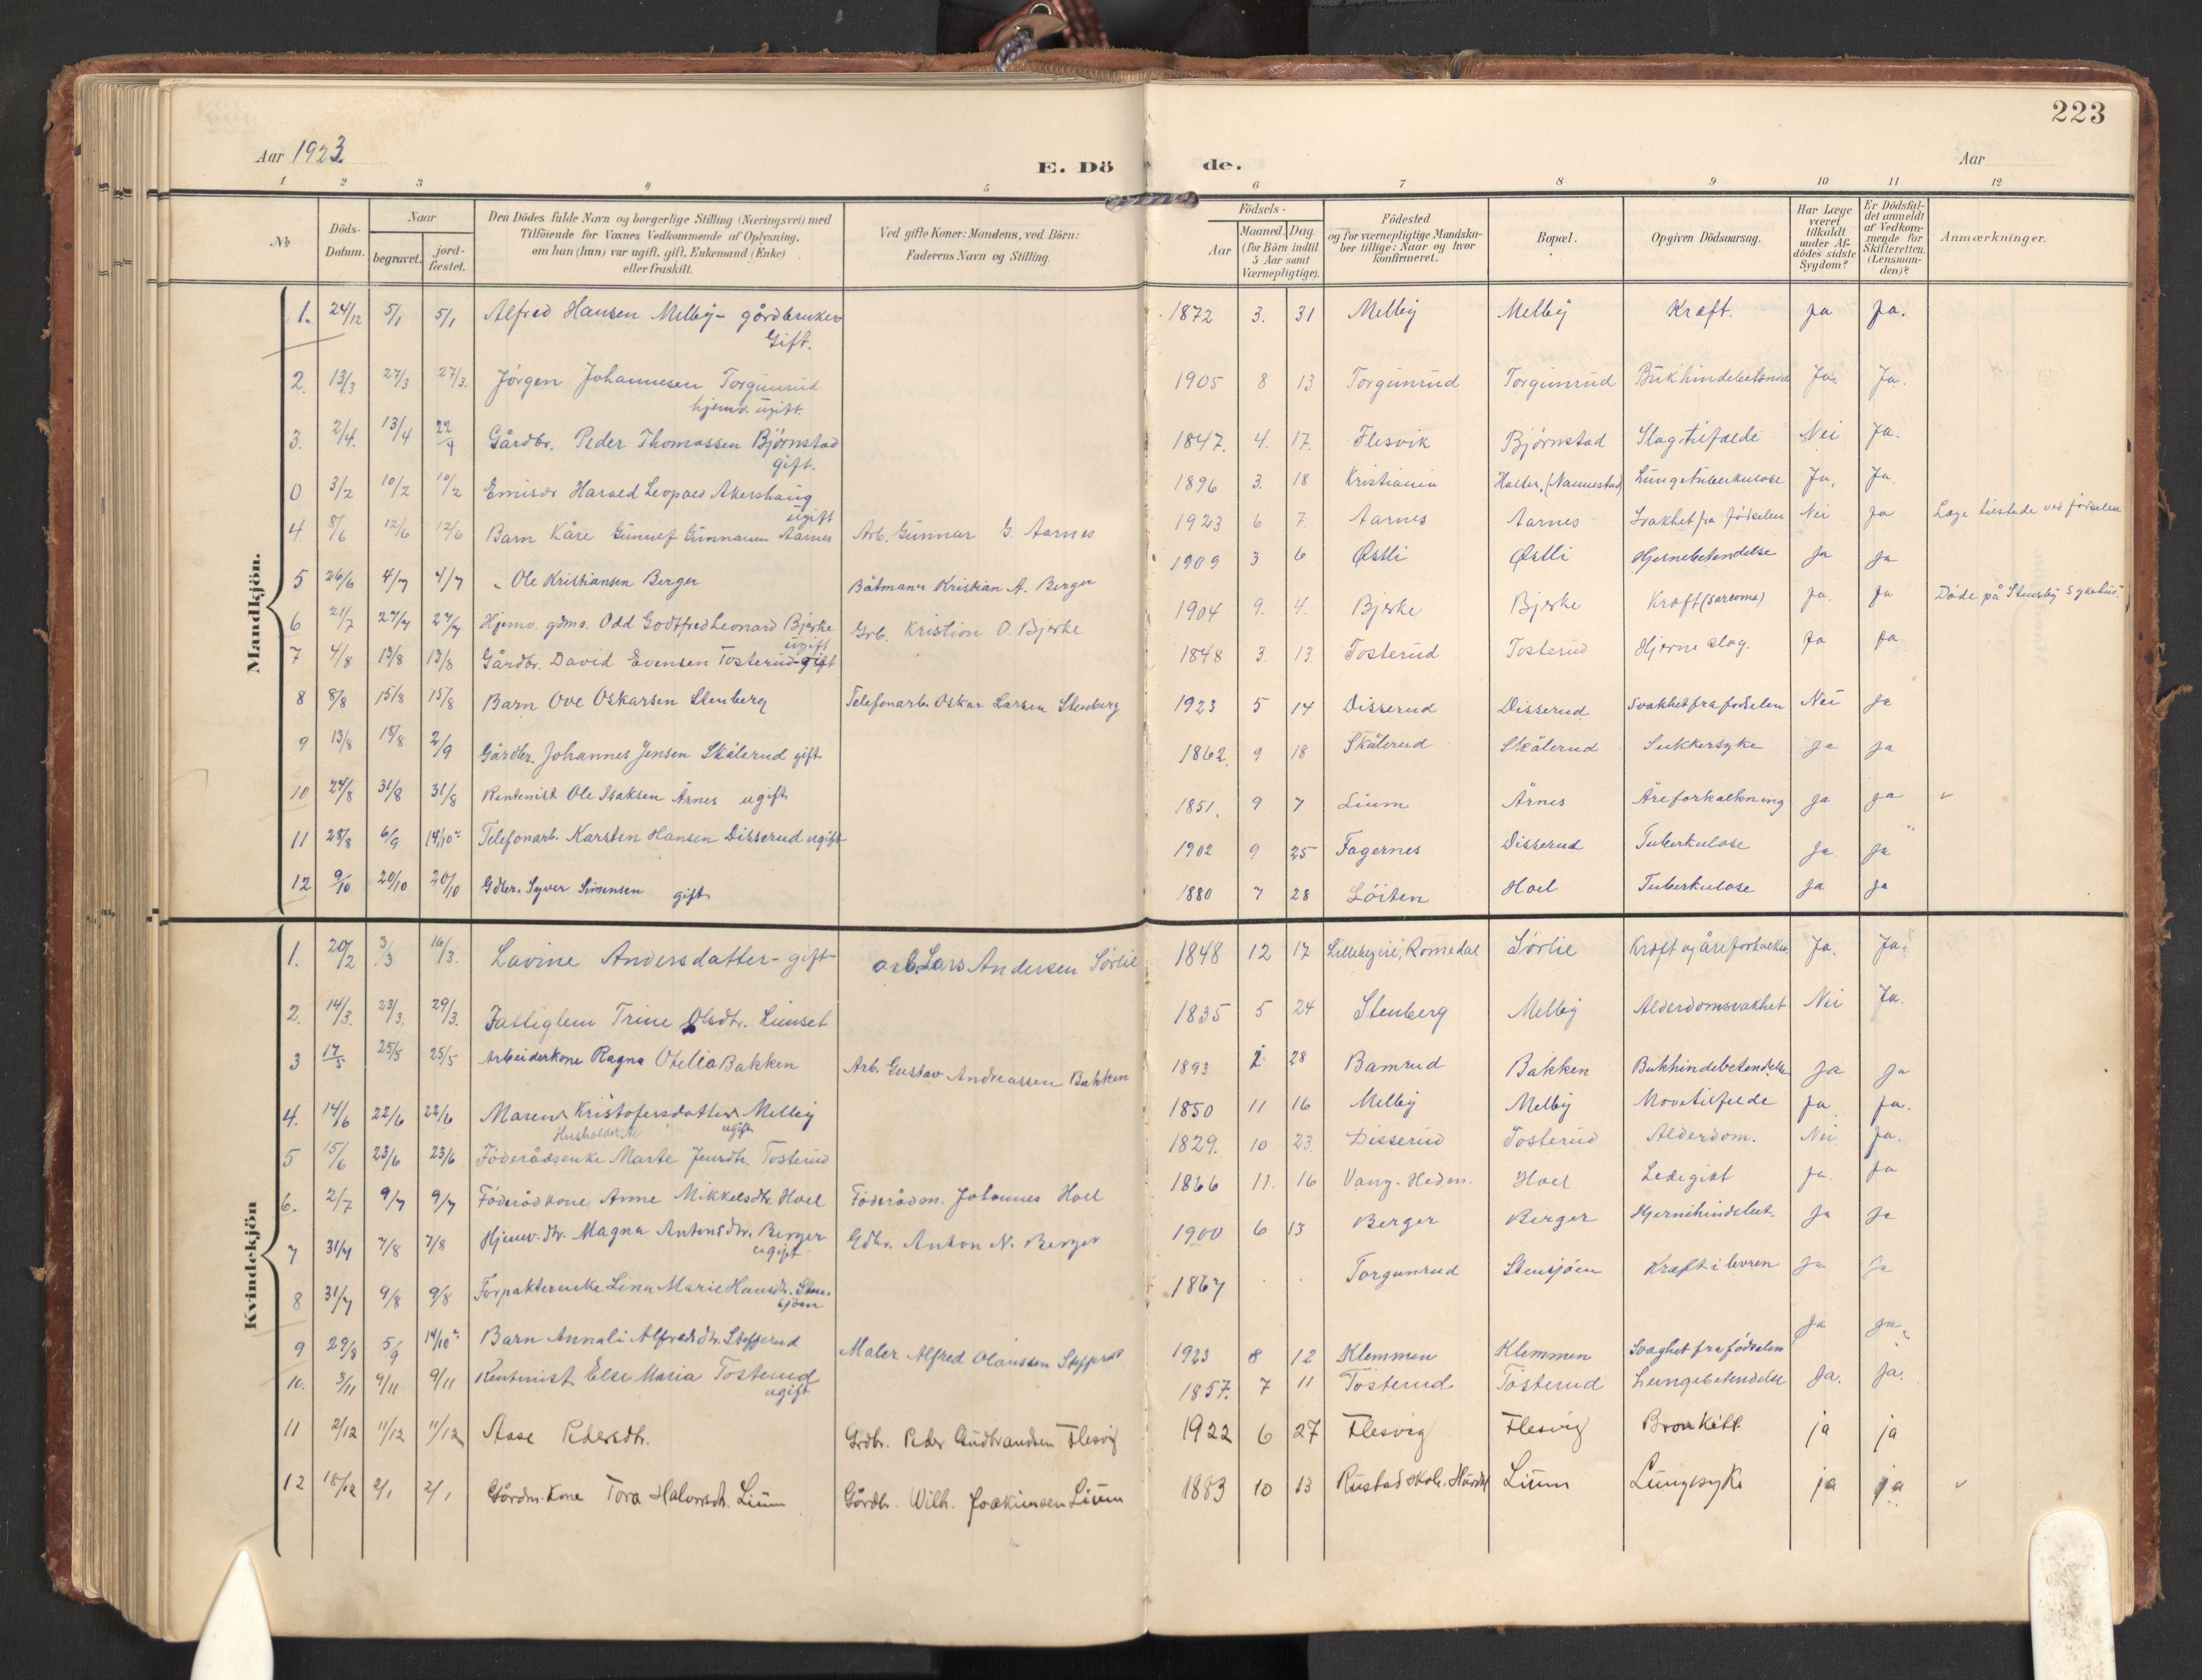 223
Aar 1923.
E. Dö de.
Aar
1 2 3 4 5 6 7 8 9 10 11 12
No
Döds-Datum.
Naar
begravet.
jord-fæstet.
Den Dödes fulde Navn og borgerlige Stilling (Næringsvei) med
Tilföiende for Voxnes Vedkommende af Oplysning,
om han (hun) var ugift, gift, Enkemand (Enke)
eller fraskilt.
Ved gifte Koner: Mandens, ved Börn:
Faderens Navn og Stilling.
Födsels-
Aar
Maaned. Dag.
(for Börn indtil
5 Aar samt
Værnepligtige).
Födested
og for værnepligtige Mandska-
ber tillige: Naar og hvor
konfirmeret.
Bopæl.
Opgiven Dödsaarsag.
Har Læge
været
tilkaldt
under Af-
dödes sidste
Sygdom?
Er Dödsfal-
det anmeldt
af Vedkom-
mende for
Skifteretten.
(Lensman-
den)?
Anmærkninger.
Mandkjön.
1. 24/12 5/1 5/1 Alfred Hansen Melby - gårdbruker Gift. 1872 3. 31 Melby Melby Kræft. ja ja.
2. 13/3 27/3 27/3. Jörgen Johannesen Torgunrud hjemv. ugift. 1905 8 13 Torgunrud Torgunrud Bukhindebetændelse Ja. Ja.
3. 2/4. 13/4 22/4 Gårdbr. Peder Thomassen Björnstad gift. 1847. 4. 17. Flesvik Björnstad Slagtilfælde Nei Ja.
0 3/2 10/2 10/2 Emisær Harald Leopold Akershaug ugift 1896 3. 18 Kristiania Holter, (Nannestad) Lungetuberkulose Ja, Ja.
4. 8/6 12/6 12/6 Barn Kåre Gunnar Aarnes Arb. Gunnar G. Aarnes 1923 6 7. Aarnes Aarnes Svakhet fra födselen Nei ja Læge tilstede ved födselen
5 26/6 4/7 4/7 " Ole Kristiansen Berger Båtmann Kristian A. Berger 1909 3 6 Østli Østli Hjernebetendelse Ja Ja
6 21/7 27/7 27/7 Hjemv. gdms. Odd Godtfred Leonard Bjerke ugift Grb. Kristian O. Bjerke 1904 9. 4. Bjerke Bjerke Kræft (sarcoma) Ja. Ja Döde på Stensby Sykehus.
7 4/8 13/8 13/8 Gårdbr. David Evensen Tosterud gift 1848 3. 13. Tosterud Tosterud Hjerneslag. Ja Ja
8 8/8 15/8 15/8 Barn Ove Oskarsen Stenberg Telefonarb. Oskar Larsen Stenberg 1923 5 14 Disserud Disserud Svakhet fra fodselen Nei Ja
9 13/8 18/8 2/9 Gårdbr. Johannes Jensen Skålerud gift. 1862. 9 18 Skålerud Skålerud Sukkersyke Ja Ja
10 24/8 31/8 31/8 Rentenist Ole Isaksen Årnes ugift 1851. 9 7 Lium Årnes Åreforkalkning Ja Ja
11 28/8 6/9 14/10 Telefonarb. Karsten Hansen Disserud ugift 1902 9 25 Fagernes Disserud Tuberkulose Ja Ja
12 9/10 20/10 20/10 Gdbr. Syver Simensen gift 1880 7 28 Löiten Hoel Tuberkulose Ja Ja
Kvindekjön
1. 20/2 3/3 16/3. Lavine Andersdatter - gift - arb. Lars Andersen Sörlie 1848 12 17 Romedal Sörlie Kræft og åreforkalkn. Ja. Ja.
2. 14/3. 23/3. 29/3. Fattiglem Trine Olsdtr. Linset 1835 5 24 Stenberg Melby Alderdomsvakhet Nei Ja.
3 17/5 25/5 25/5 Arbeiderkone Ragna Otelia Bakken Arb. Gustav Andreassen Bakken 1893 28 Bamrud Bakken Bukhindebetendelse Ja Ja
4. 14/6 22/6 22/6 Maren Kristofersdatter Melby Husholderske ugift 1850 11 16 Melby Melby Ja Ja.
5 15/6 23/6 23/6 Föderådsenke Marte Jensdtr. Tosterud 1829. 10 23. Disserud Tosterud Alderdom. Nei Ja.
6. 2/7 9/7 9/7 Föderådkone Anne Mikkelsdtr. Hoel Föderådm. Johannes Hoel 1866 11. 16 Vang. Hedm. Hoel Ledegigt Ja. Ja
7 31/7 7/8 7/8 Hjemv. dtr. Magna Antonsdtr. Berger ugift Gdbr. Anton N. Berger 1900 6 13 Berger Berger Hjernehindebet. Ja Ja
8 31/7 9/8 9/8 Forpakterenke Lina Marie Hansdtr. Stensjöen 1867 . . Torgunrud Stensjöen Kræft i levren Ja Ja
9 29/8 5/9 14/10 Barn Annali Alfredsdtr. Stefferud Maler Alfred Olaussen Stefferud 1923 8 12 Klemmen Klemmen Svaghet fra födselen Ja Ja
10. 3/11 9/11 9/11 Rentenist Else Maria Tosterud ugift 1857. 7 11 Tosterud Tosterud Lungebetendelse Ja. Ja.
11 2/12 11/12 11/12 Aase Pedersdtr. Grdbr. Peder Gudbrandsen Flesvig 1922 6 27 Flesvig Flesvig Bronkitt ja ja
12 18/12 2/1 2/1 Gårdm. kone Tora Halvorsdtr. Lium Gårdbr. Wilh. Joakimsen Lium 1883 10 13 Rustad skole, Hurdal Lium Lungesyke ja ja